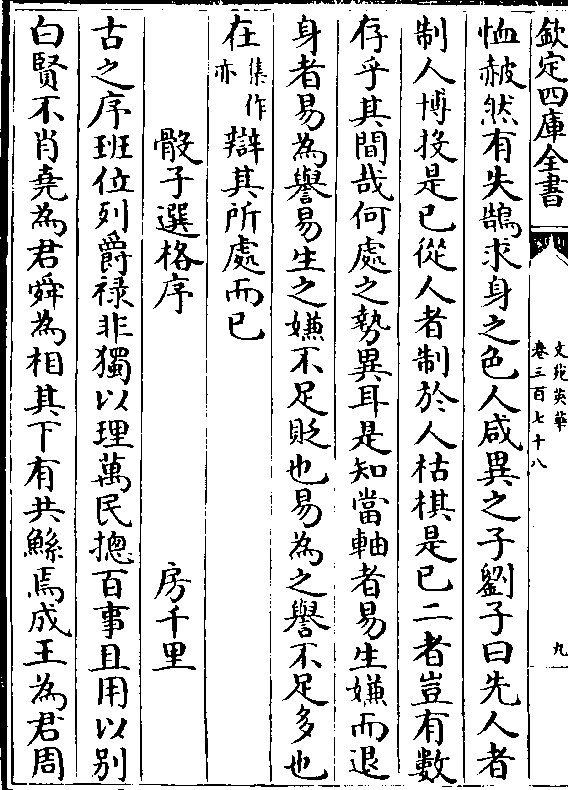 欽定四庫全書
文苑英華
卷三百七十八
九
恤赧然有失鵠求身之色人咸異之子劉子曰先人者
制人博投是已從人者制於人枯棋是已二者豈有數
存乎其間哉何處之勢異耳是知當軸者易生嫌而退
身者易為譽易生之嫌不足貶也易為之譽不足多也
在集作亦辯其所處而已
骰子選格序
房千里
古之序班位列爵禄非獨以理萬民摠百事且用以别
白賢不肖堯為君舜為相其下有共鯀焉成王為君周